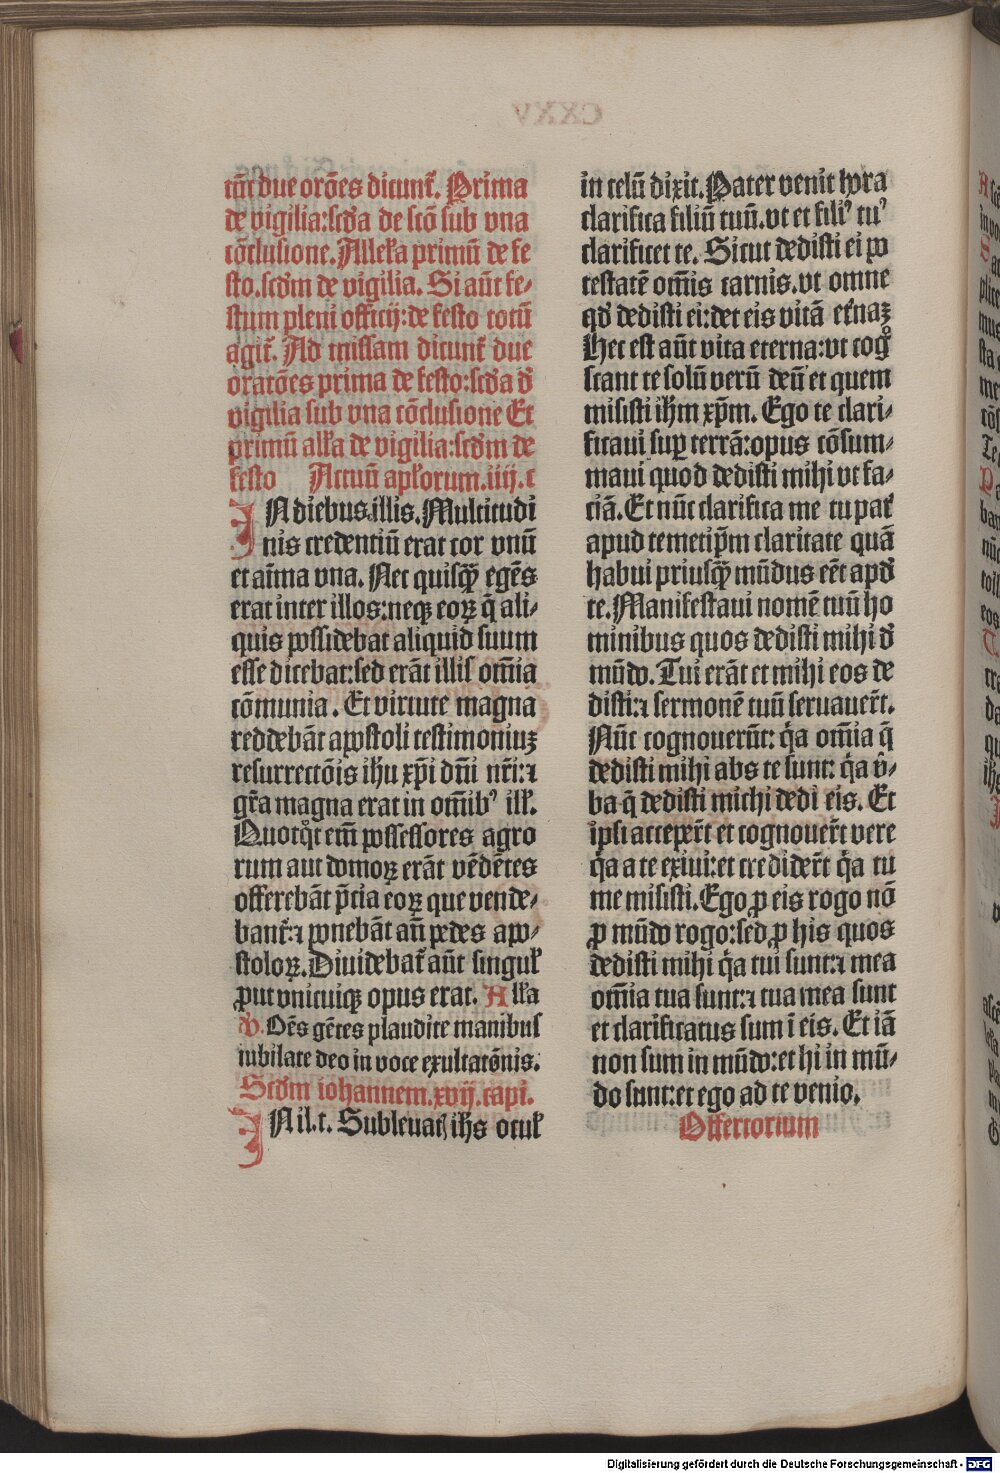 tūr due orōes dicunt᷑. Prima
de vigilia:scd̄a de scō sub vna
cōclusione. Alleła primū de fe
sto.scd̄m de vigilia. Si aūt fe-
stum pleni officij:de festo totū
agit᷑. Ad missam dicunt᷑ due
oratōes prima de festo:scd̄a d̄
vigilia sub vna cōclusione Et
primū alła de vigilia:scd̄m de
festo Actuū apłorum.iiij.c
IN diebus illis. Multitudi
nis credentiū erat cor vnū
et aīma vna. Nec quisqꝫ̄ egēs
erat inter illos:neqꝫ eoꝝ q̄ ali-
quis possidebat aliquid suum
esse dicebat:sed erāt illis om̄ia
cōmunia. Et virtute magna
reddebāt apostoli testimoniuꝫ
resurrectōis ihu xp̄i dn̄i nr̄i:⁊
gr̄a magna erat in om̄ibꝰ ilł.
Quotqͦt em̄ possessores agro
rum aut domoꝝ erāt vēdētes
offerebāt p̄cia eoꝝ que vende-
bant᷑:⁊ ponebāt an̄ pedes apo-
stoloꝝ. Diuidebat᷑ aūt singuł
ꝓut vnicuiqꝫ opus erat. Alła
V. Oēs gētes plaudite manibus
iubilate deo in voce exultatōnis.
Scd̄m iohannem.xvij.capi.
IN il.t. Subleuatꝭ ih̄s ocuł
in celū dixit. Pater venit hora
clarifica filiū tuū.vt et filiꝰ tuꝰ
clarificet te. Sicut dedisti ei po
testatē om̄is carnis.vt omne
qd̄ dedisti ei:det eis vitā et᷑naꝫ
Hec est aūt vita eterna:vt cogͦ
scant te solū verū deū et quem
misisti ih̄m xp̄m. Ego te clari-
ficaui suꝑ terrā:opus cōsum-
maui quod dedisti mihi vt fa-
ciā. Et nūc clarifica me tu pat᷑
apud temetip̄m claritate quā
habui priusqꝫ̄ mūdus eēt apd̄
te. Manifestaui nomē tuū ho
minibus quos dedisti mihi d̄
mūdo. Tui erāt et mihi eos de
disti:⁊ sermonē tuū seruauer̄t.
Nūc cognouerūt: qͥa om̄ia q̄
dedisti mihi abs te sunt: qͥa v̄-
ba q̄ dedisti michi dedi eis. Et
ipsi acceper̄t et cognouer̄t vere
qͥa a te exiui:et credider̄t qͥa tu
me misisti. Ego ꝓ eis rogo nō
ꝓ mūdo rogo:sed ꝓ his quos
dedisti mihi qͥa tui sunt:⁊ mea
om̄ia tua sunt:⁊ tua mea sunt
et clarificatus sum ī eis. Et iā
non sum in mūdo:et hi in mū-
do sunt:et ego ad te venio.
Offertorium
Digitalisierung gefördert durch die Deutsche Forschungsgemeinschaft - DFG